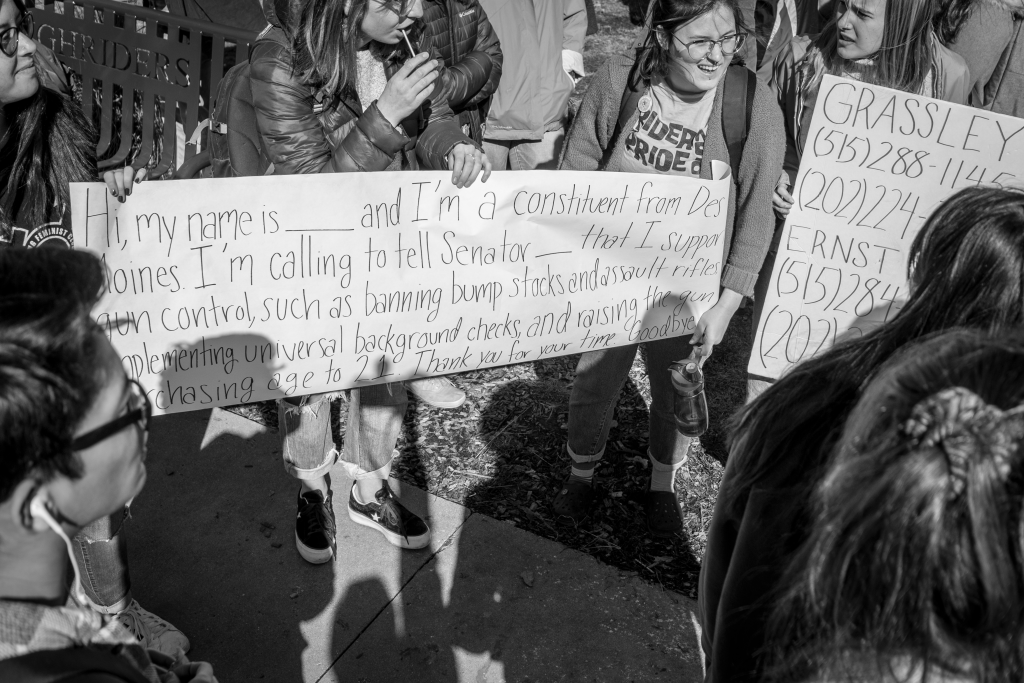 GHRIDERS
RIDERS
PRIDE
FEMINIST
Hi, my name is ____ and I'm a constituent from Des
Moines. I'm calling to tell Senator __ that I suppor
gun control, such as banning bump stocks and assault rifles
mplementing universal background checks, and raising the gun
rchasing age to 21. Thank you for your time. Goodbye
GRASSLEY
(515)288-1145
(202)224-
ERNST
(515)284
(202)